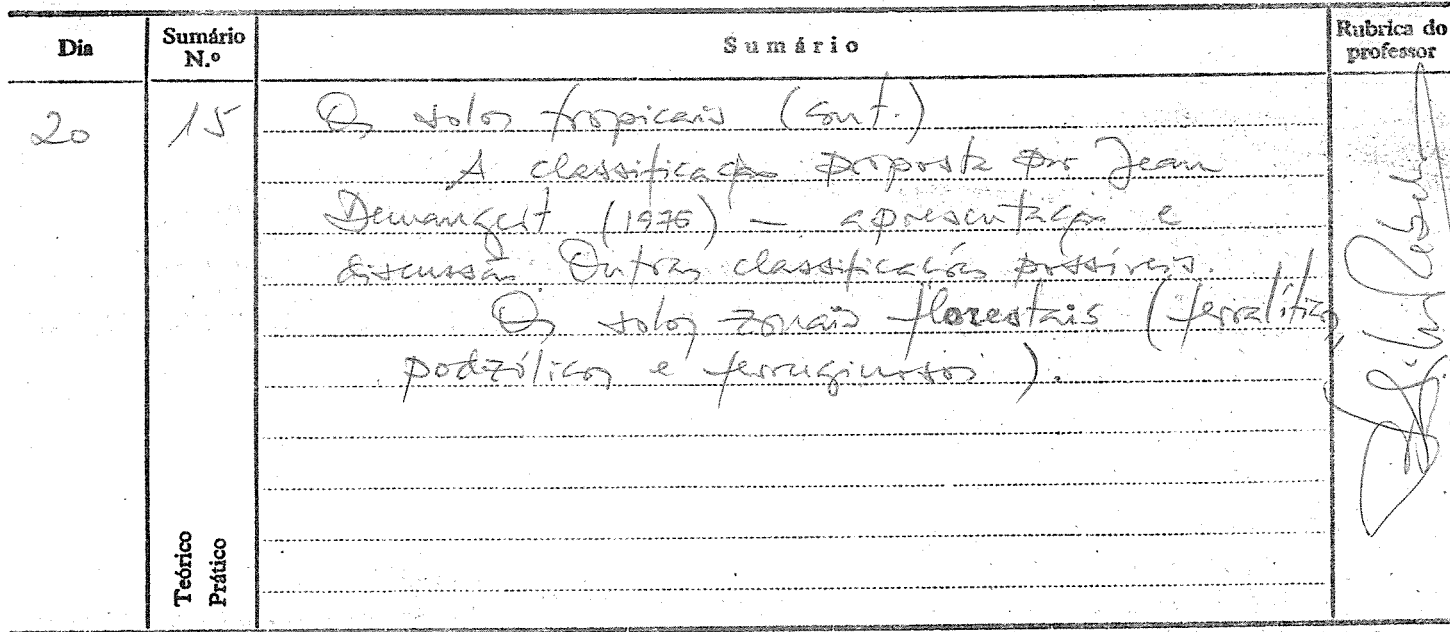 Dia
Sumário N.º
Sumário
Rubrica do professor
20
15
Os solos tropicais (cont.)
A classificação proposta por Jean
Demangeot (1976) — apresentação e
discussão. Outras classificações possíveis.
Os solos zonais florestais (ferralíticos,
podzólicos e ferruginosos).
Teórico
Prático